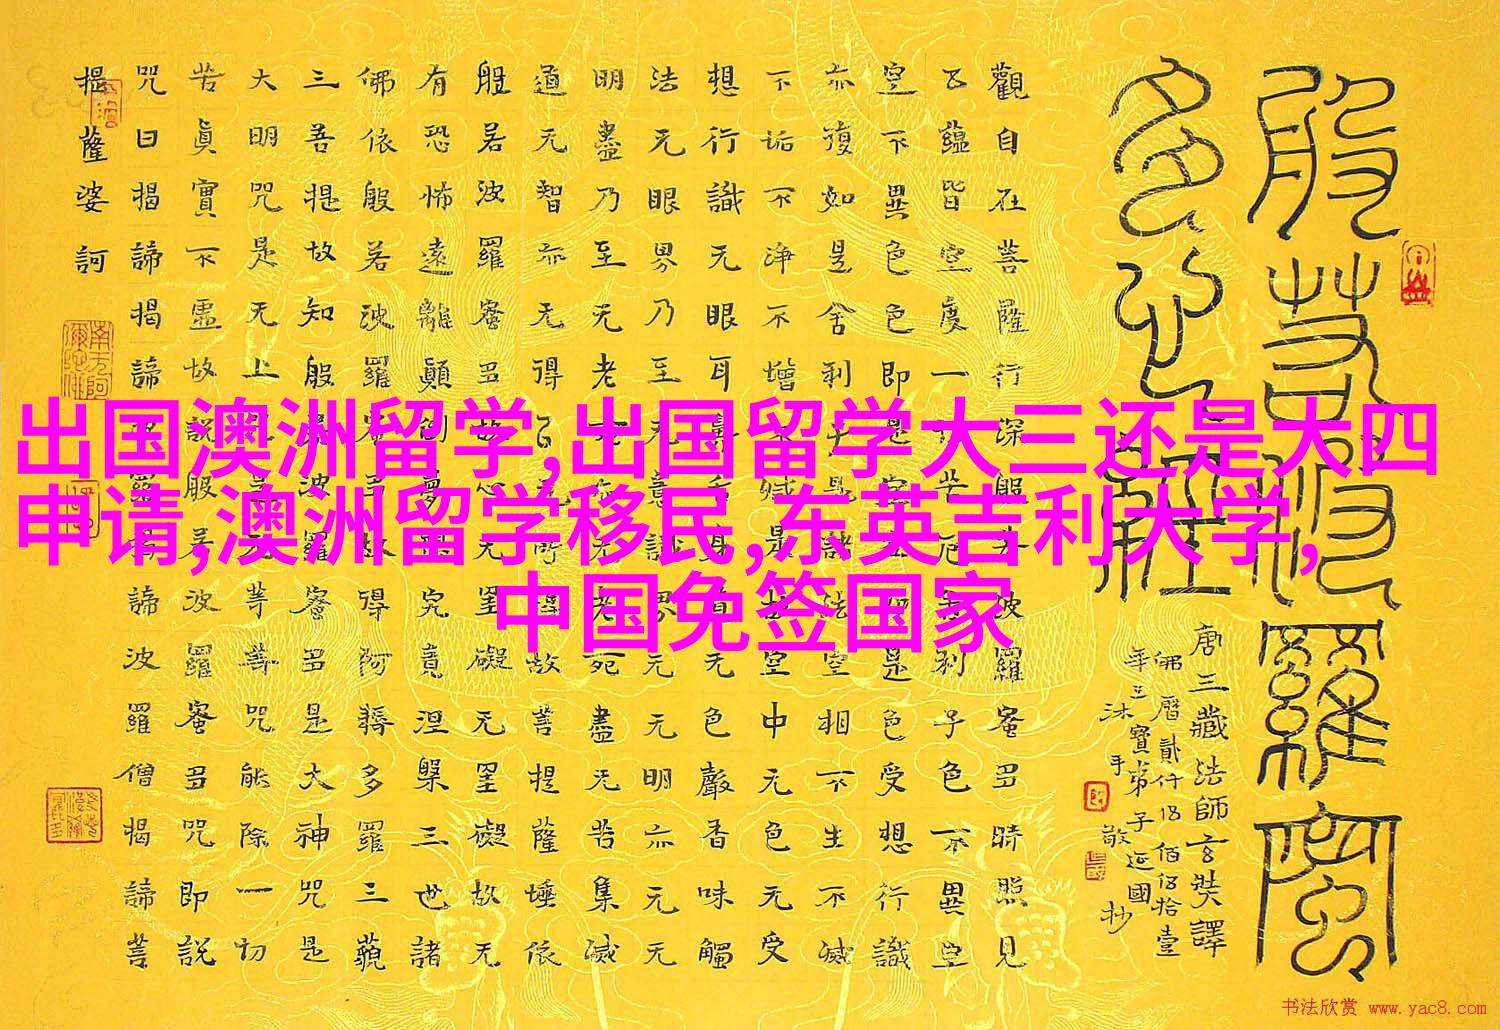 出国澳洲留学,出国留学大三还是大四
申请,澳洲留学移民,东英吉利大学,
中国免签国家
般若波羅蜜
多心經
唐三藏法師玄奘譯
觀自在菩薩行深般若波羅蜜多時照見
五蘊皆空度一切苦厄舍利子色不異空
空不異色色即是空空即是色受想行識
亦復如是舍利子是諸法空相不生不滅
不垢不淨不增不減是故空中无色无受
想行識无眼耳鼻舌身意无色聲香味觸
法无眼界乃至无意識界无无明亦无无
明盡乃至无老死亦无老死盡无苦集滅
道无智亦无得以无所得故菩提薩埵依
般若波羅蜜多故心无罣礙无罣礙故无
有恐怖遠離顛倒夢想究竟涅槃三世諸
佛依般若波羅蜜多故得阿耨多羅三藐
三菩提故知般若波羅蜜多是大神咒是
大明咒是无上咒是无等等咒能除一切
苦真實不虛故說般若波羅蜜多咒即說
咒曰揭諦揭諦波羅揭諦波羅僧揭諦菩
提薩婆訶
书法欣赏 www.yac8.com